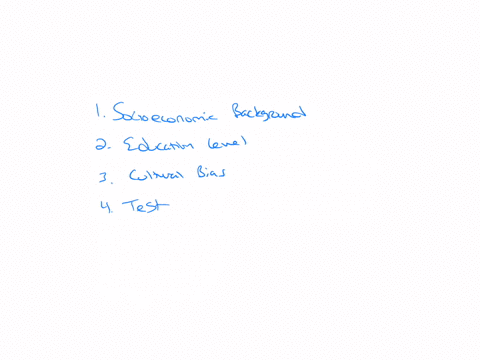 1. Socioeconomic Background
2. Education Level
3. Cultural Bias
4. Test